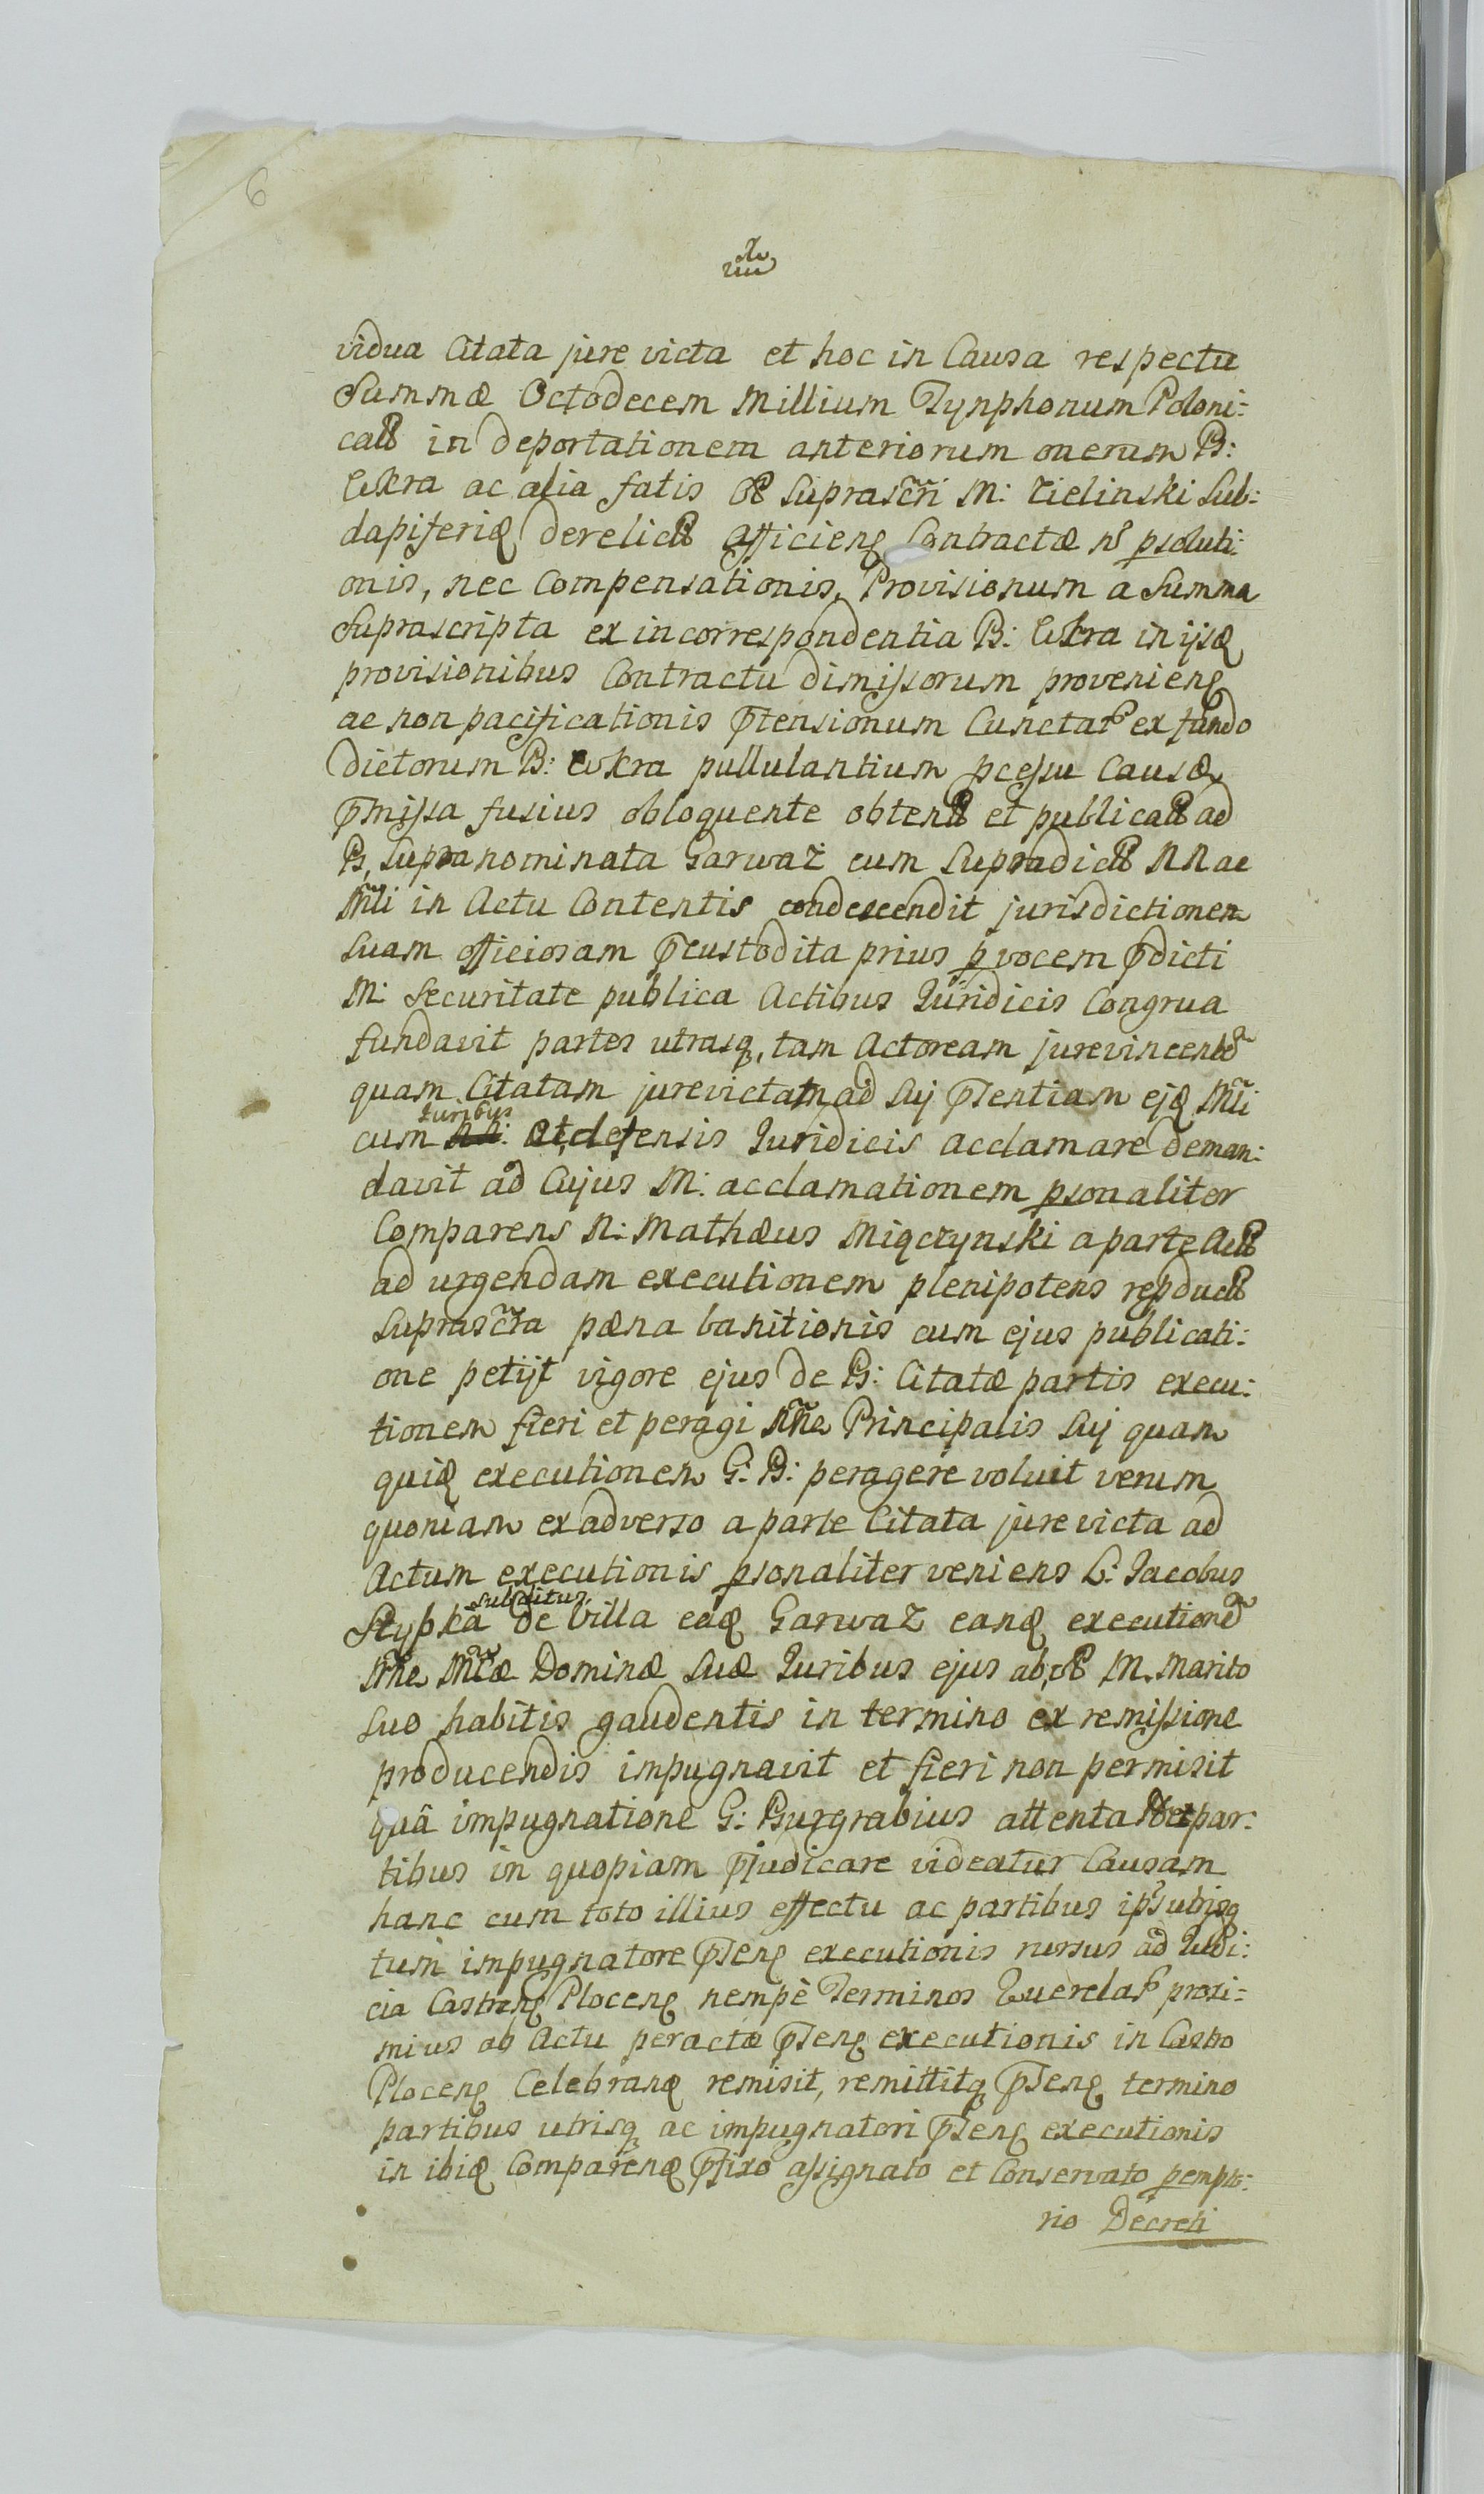 6
vidua Citata jure victa et hoc in Causa respectu
Summæ Octodecem Millium Tynphonum Poloni:
in deportationem anteriorum onerum B:
ac alia fatis Suprascr̃i M: Zielinski Sub:
dapiferi derelict Contractæ psoluti:
onis, nec Compensationis, Provisionum a Summa
Suprascripta ex incorrespondentia B: in ijsq
provisionibus Contractu dimissorum provenienq
ac non pacificationis p̃tensionum Cunctar ex fundo
dictorum B: pullulantium pcessu Causæ
p̃missa fusius obloquente obtent et publicat ad
B, Supra nominata Garwaz cum Supradict NN ac
Mli in Actu Contentis condescendit jurisdictionem
suam officiosam p̃custodita prius p vocem p̃dicti
M: Securitate publica Actibus Juridicis Congrua
fundavit partes utrasq, tam Actoream jurevincent̃
quam Citatam jurevictam ad Sui p̃sentiam ejq Mli
Juribus
cum et defensis Juridicis acclamare deman:
davit ad Cujus M: acclamationem psonaliter
Comparens N: Mathæus Miączynski a parte
ad urgendam executionem plenipotens repduct
Suprascr̃ta pæna banitionis cum ejus publicati:
one petijt vigore ejus de B: Citatæ partis execu:
tionem fieri et peragi Nñe Principalis Sui quam
quiq executionem G: B: peragere voluit verum
quoniam ex adverso a parte Citata jure victa ad
Actum executionis psonaliter veniens L: Jacobus
subditus
Stypka de Villa eaq Garwaz eanq execution̄
Nñe Mcæ Dominæ Suæ Juribus ejus ab M. Marito
suo habitis gaudentis in termino ex remissione
producendis impugnavit et fieri non permisit
quâ impugnatione G: Burgrabius attenta par:
tibus in quopiam p̃judicare videatur Causam
hanc cum toto illius effectu ac partibus
tum impugnatore p̃senq executionis rursus ad Judi:
cia Castrenq Plocenq nempè Terminos Querelar proxi:
mius ab Actu peractæ p̃senq executionis in Castro
Plocenq Celebranq remisit, remittitq p̃senq termino
partibus utrisq ac impugnatori p̃senq executionis
in ibiq Comparenq p̃fixo assignato et Conservato pempto:
rio Decreti